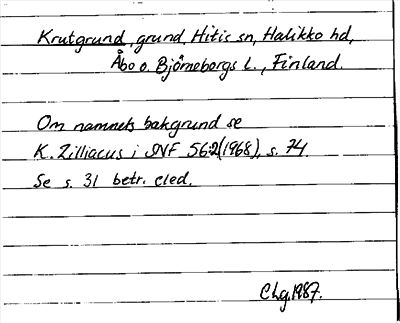 Krutgrund, grund, Hitis sn, Halikko hd,
Åbo o. Björneborgs l., Finland.
Om namnets bakgrund se
K. Zilliacus i SNF 56:2(1968), s. 74.
Se s. 31 betr. eled.
Chg. 1987.